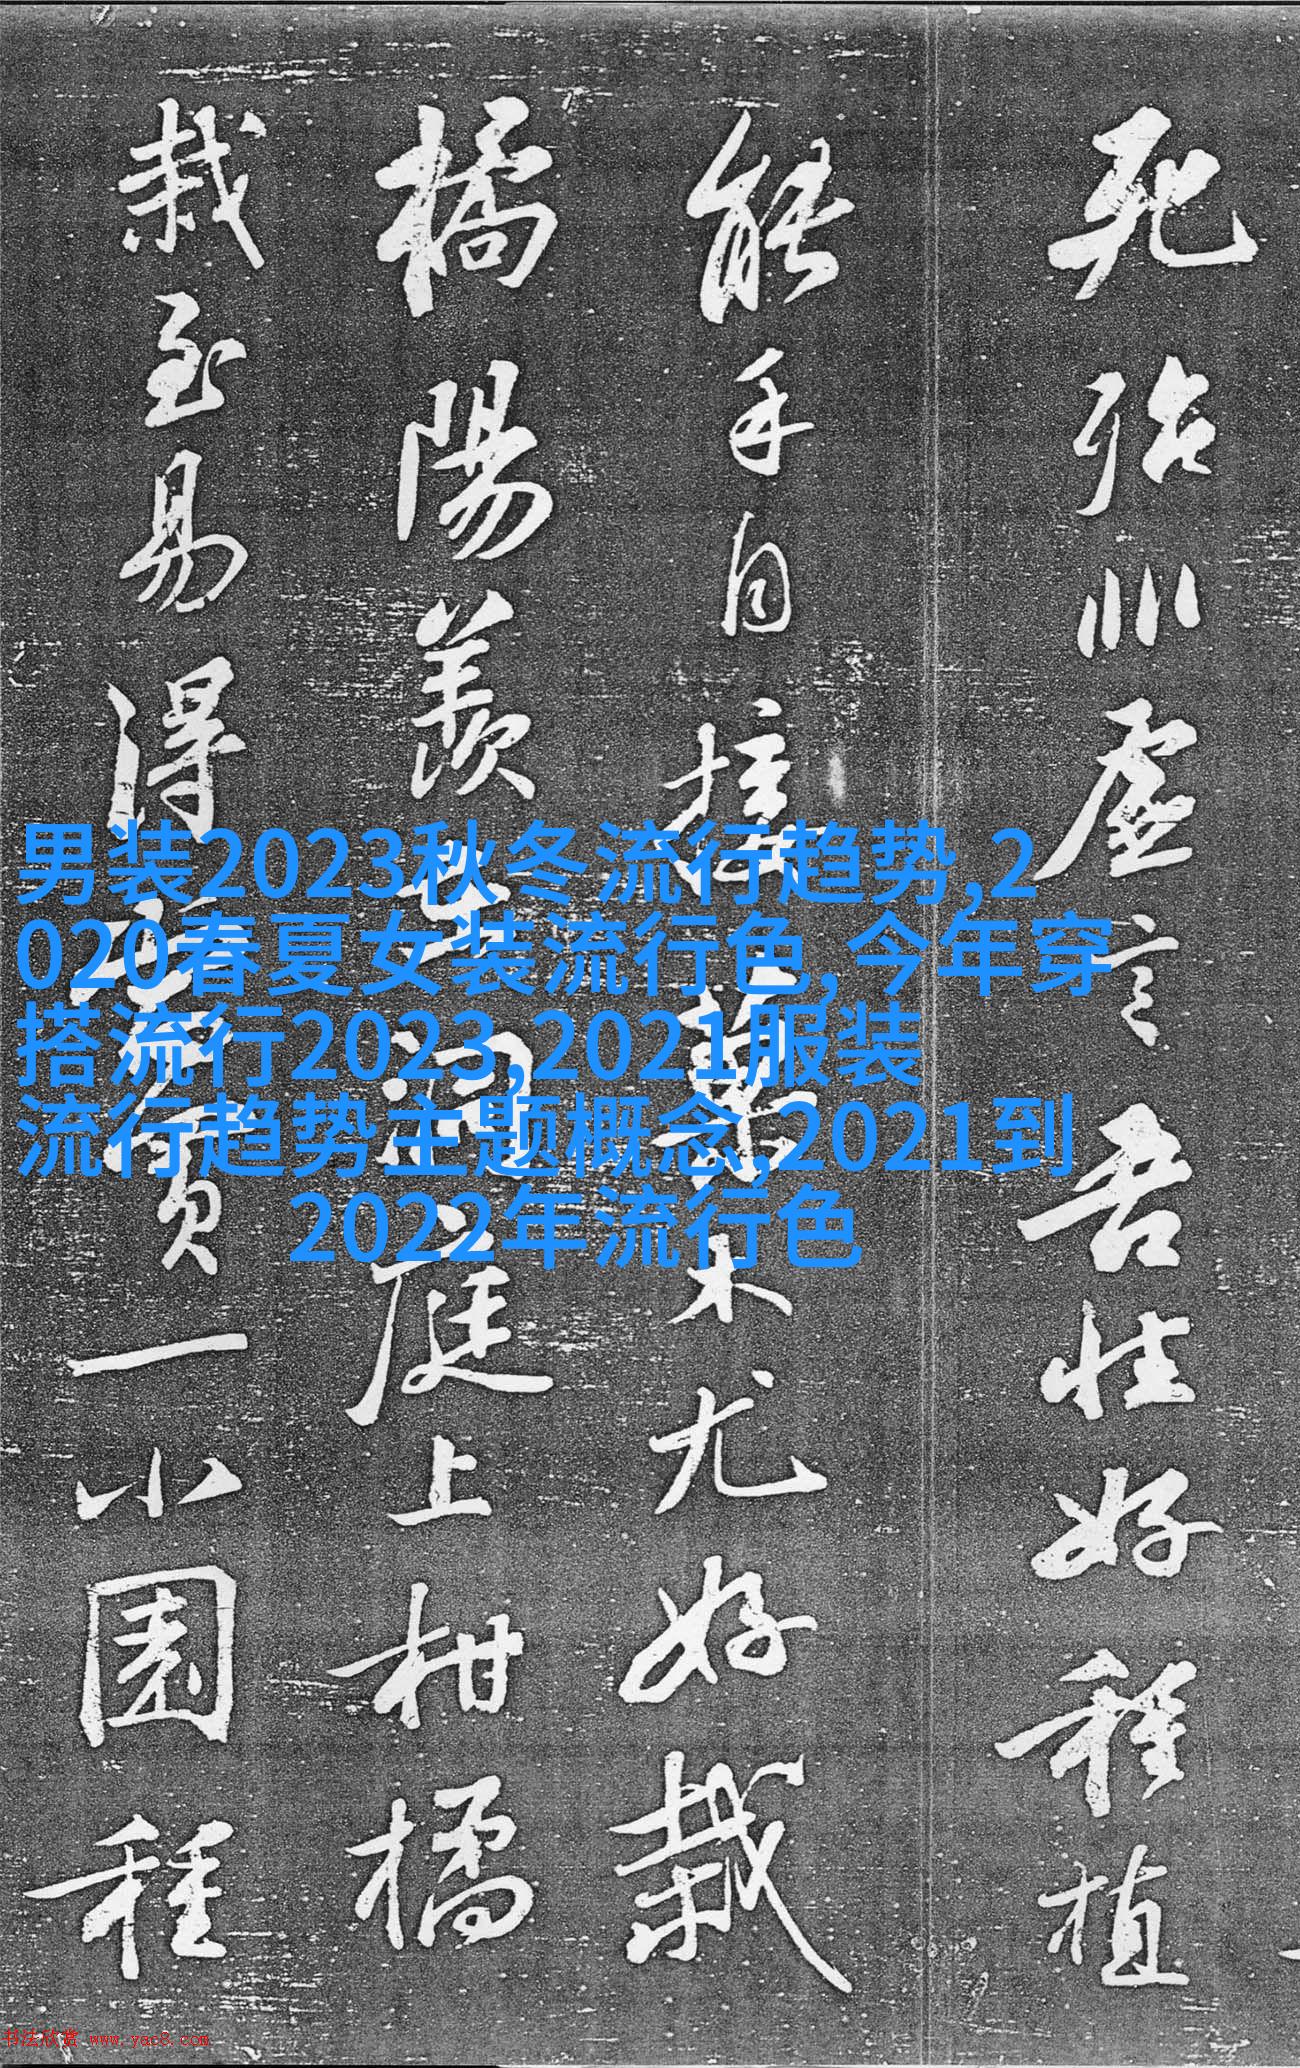 死殆非虛言吾性好種植
能手自接菓木尤好栽
橘陽羨在洞庭上柑橘
栽至易得當買一小園種
男装2023秋冬流行趋势,2
020春夏女装流行色,今年穿
搭流行2023,2021服装
流行趋势主题概念,2021到
2022年流行色
书法欣赏 www.yac8.com